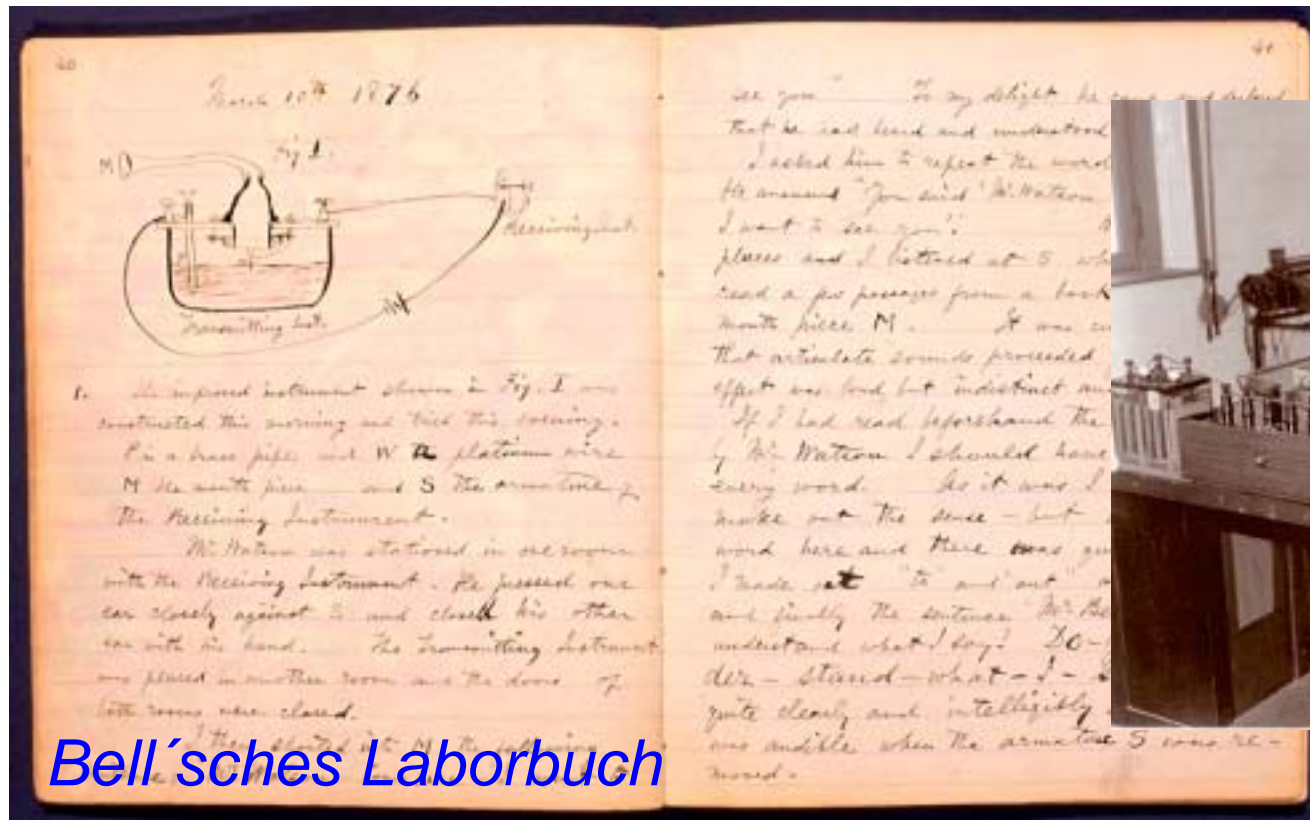 40
March 10th 1876
Fig I.
M
Receiving Inst.
Transmitting Inst.
1. The improved instrument shown in Fig. I was
constructed this morning and tried this evening.
P is a brass pipe and W the platinum wire
M the mouth piece and S the armature of
the Receiving Instrument.
Mr. Watson was stationed in one room
with the Receiving Instrument. He pressed one
ear closely against S and closed his other
ear with his hand. The Transmitting Instrument
was placed in another room and the doors of
both rooms were closed.
I then shouted into M the following
Bell´sches Laborbuch
41
see you" To my delight he came and declared
that he had heard and understood
I asked him to repeat the word
He answered "You said 'Mr. Watson
I want to see you'."
places and I listened at S
read a few passages from a book
mouth piece M. It was
that articulate sounds proceeded
effect was loud but indistinct and
If I had read beforehand the
by Mr. Watson I should have
every word. As it was I
make out the sense - but
word here and there was
I made out "to" and "out"
and finally the sentence Mr. Be
understand what I say? DO-
der - stand - what - I -
quite clearly and intelligibly
was audible when the armature S was re-
moved.